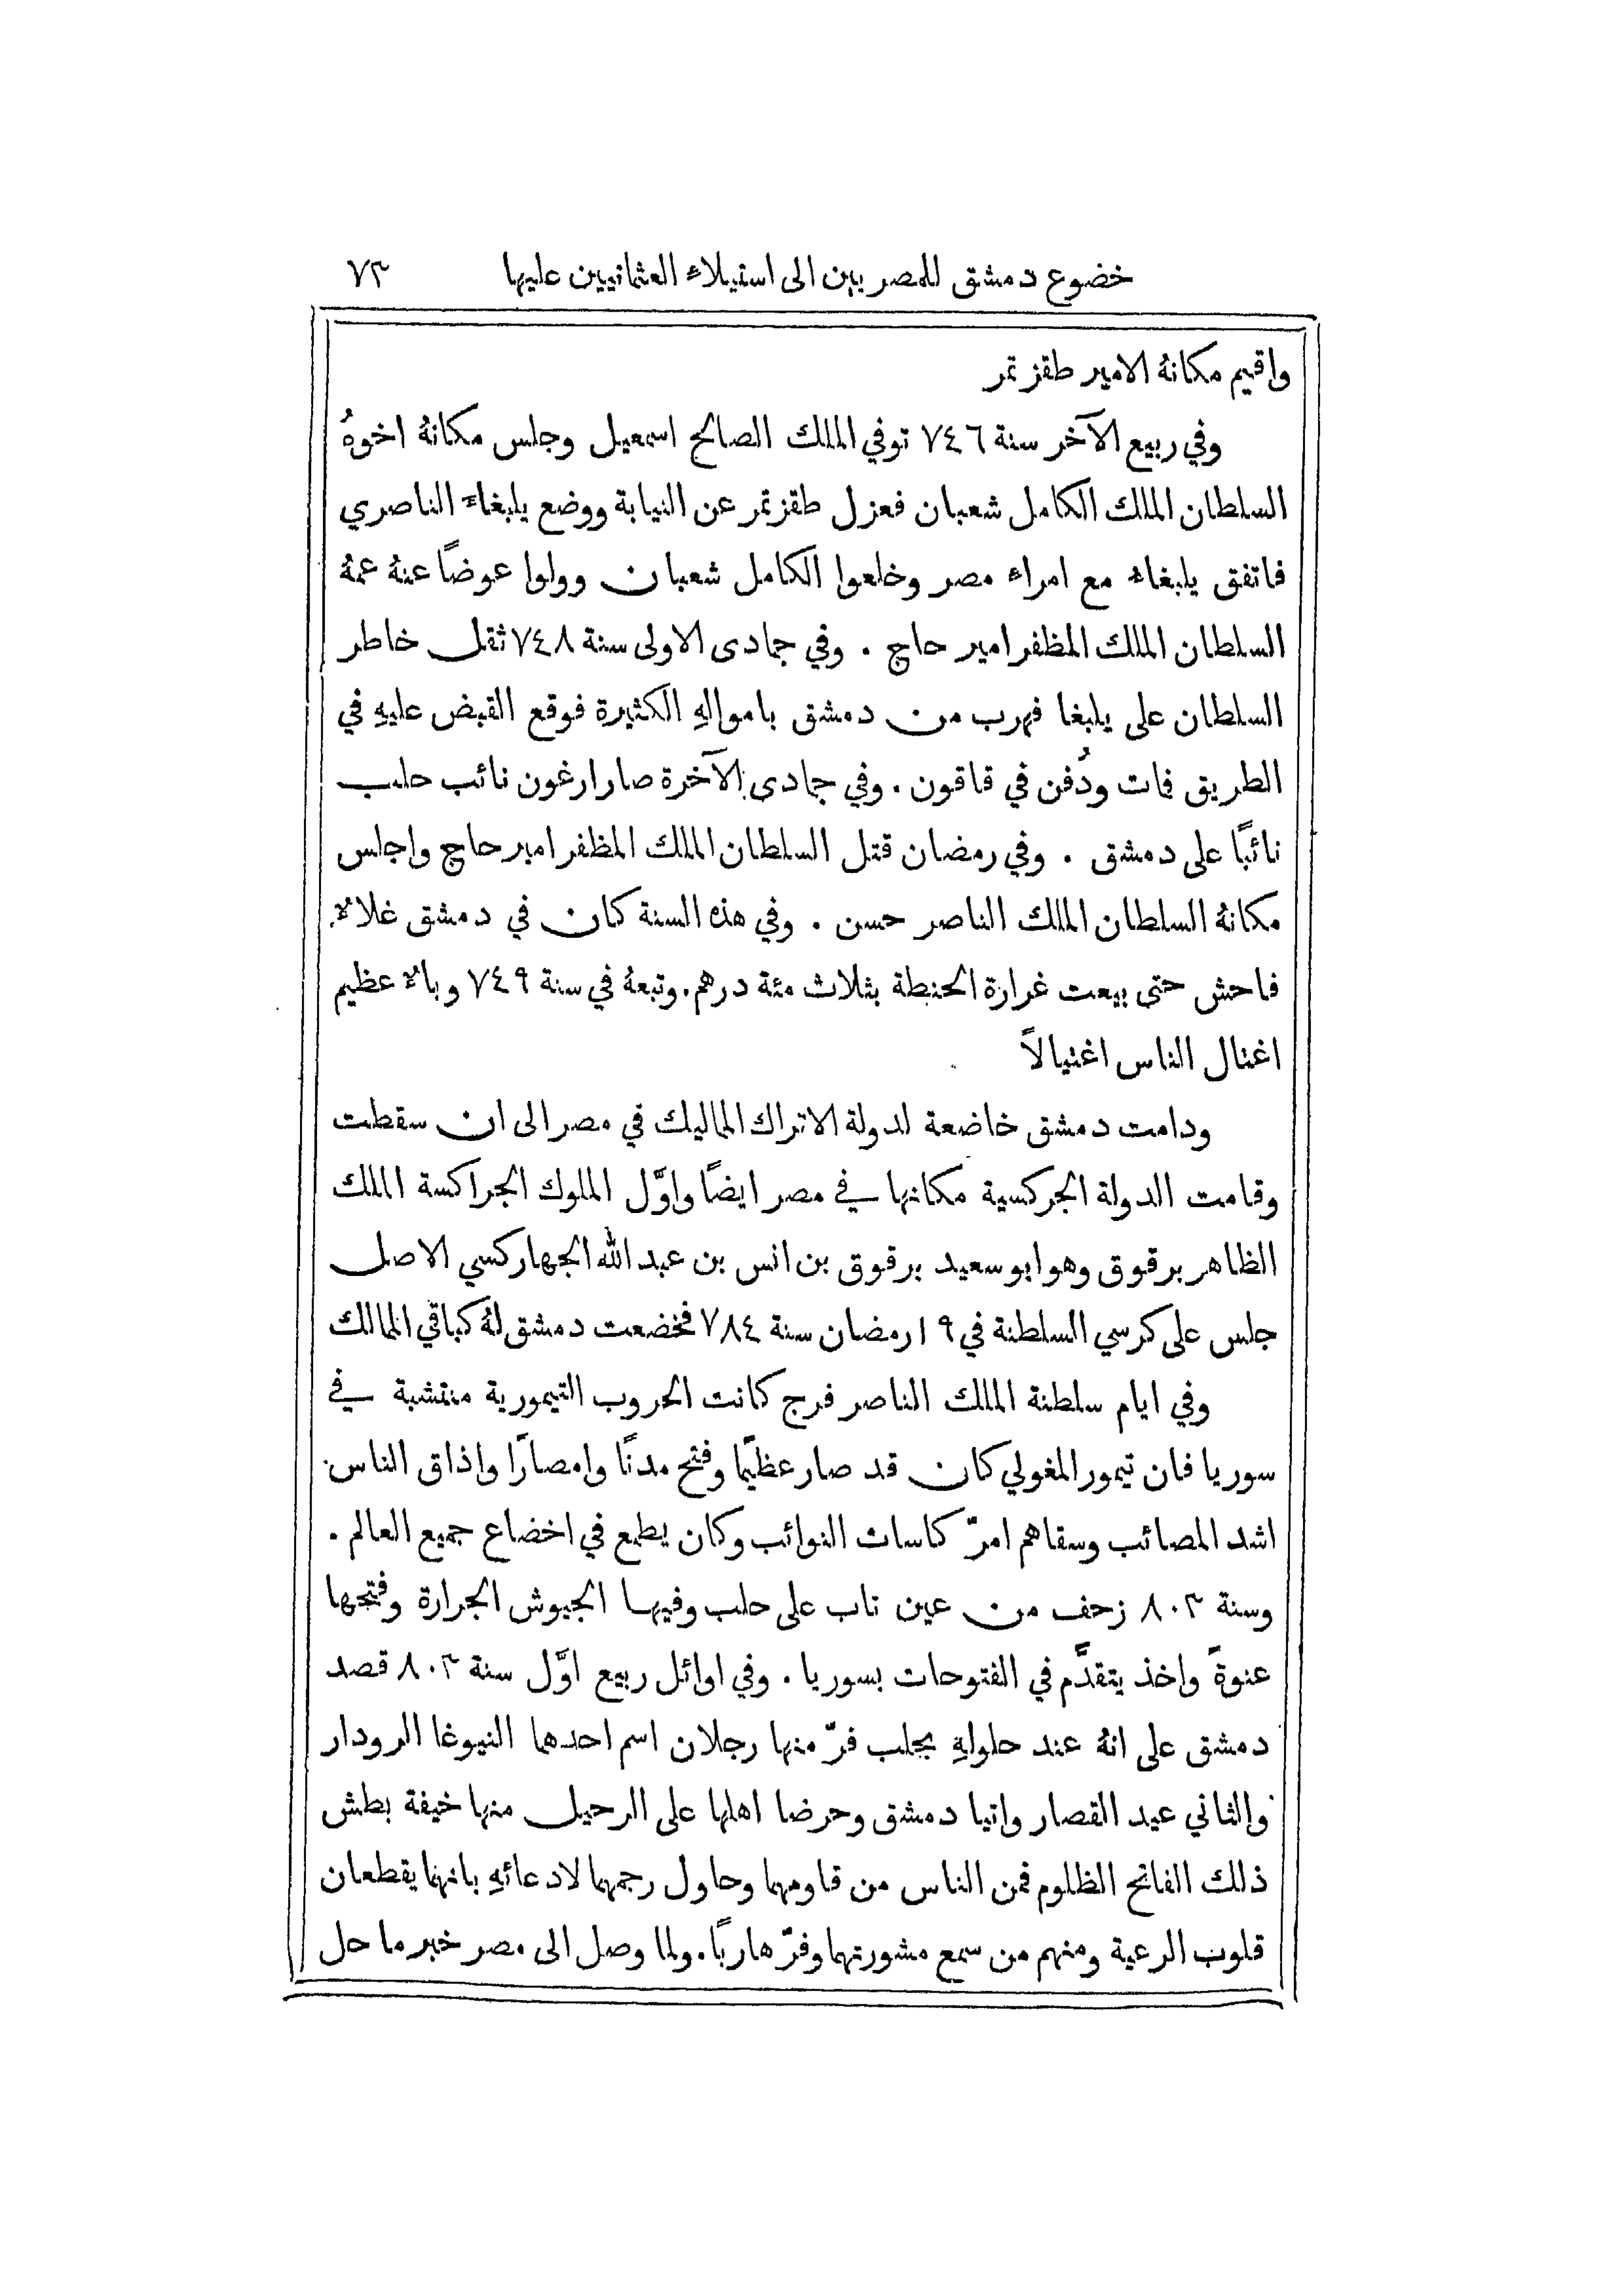 خضوع دمشق للمصريين الى استيلاء العثمانيين عليها ٧٣
واقيم مكانهُ الامير طقزتمر
وفي ربيع الآخر سنة ٧٤٦ توفي الملك الصالح اسمعيل وجلس مكانهُ اخوهُ
السلطان الملك الكامل شعبان فعزل طقزتمر عن النيابة ووضع يلبغاء الناصري
فاتفق يلبغاء مع امراء مصر وخلعوا الكامل شعبان وولوا عوضاً عنهُ عمهُ
السلطان الملك المظفر امير حاج . وفي جمادى الاولى سنة ٧٤٨ ثقل خاطر
السلطان على يلبغا فهرب من دمشق باموالهِ الكثيرة فوقع القبض عليهِ في
الطريق فمات ودُفن في قاقون . وفي جمادى الآخرة صار ارغون نائب حلب
نائباً على دمشق . وفي رمضان قتل السلطان الملك المظفر امير حاج واجلس
مكانهُ السلطان الملك الناصر حسن . وفي هذه السنة كان في دمشق غلاءٌ
فاحش حتى بيعت غرارة الحنطة بثلاث مئة درهم . وتبعهُ في سنة ٧٤٩ وباءٌ عظيم
اغتال الناس اغتيالاً
ودامت دمشق خاضعة لدولة الاتراك المماليك في مصر الى ان سقطت
وقامت الدولة الجركسية مكانها في مصر ايضاً واوَّل الملوك الجراكسة الملك
الظاهر برقوق وهو ابو سعيد برقوق بن انس بن عبد الله الجهاركسي الاصل
جلس على كرسي السلطنة في ١٩ رمضان سنة ٧٨٤ فخضعت دمشق لهُ كباقي الممالك
وفي ايام سلطنة الملك الناصر فرج كانت الحروب التيمورية منتشبة في
سوريا فان تيمور المغولي كان قد صار عظيماً وفتح مدناً وامصاراً واذاق الناس
اشد المصائب وسقاهم امرّ كاسات النوائب وكان يطمع في اخضاع جميع العالم .
وسنة ٨٠٣ زحف من عين تاب على حلب وفيها الجيوش الجرارة وفتحها
عنوةً واخذ يتقدَّم في الفتوحات بسوريا . وفي اوائل ربيع اوَّل سنة ٨٠٣ قصد
دمشق على انهُ عند حلولهِ بحلب فرّ منها رجلان اسم احدهما النيوغا الرودار
والثاني عيد القصار واتيا دمشق وحرضا اهلها على الرحيل منها خيفة بطش
ذلك الفاتح الظلوم فمن الناس من قاومهما وحاول رجمهما لادعائهِ بانهما يقطعان
قلوب الرعية ومنهم من سمع مشورتهما وفرّ هارباً . ولما وصل الى مصر خبر ما حل